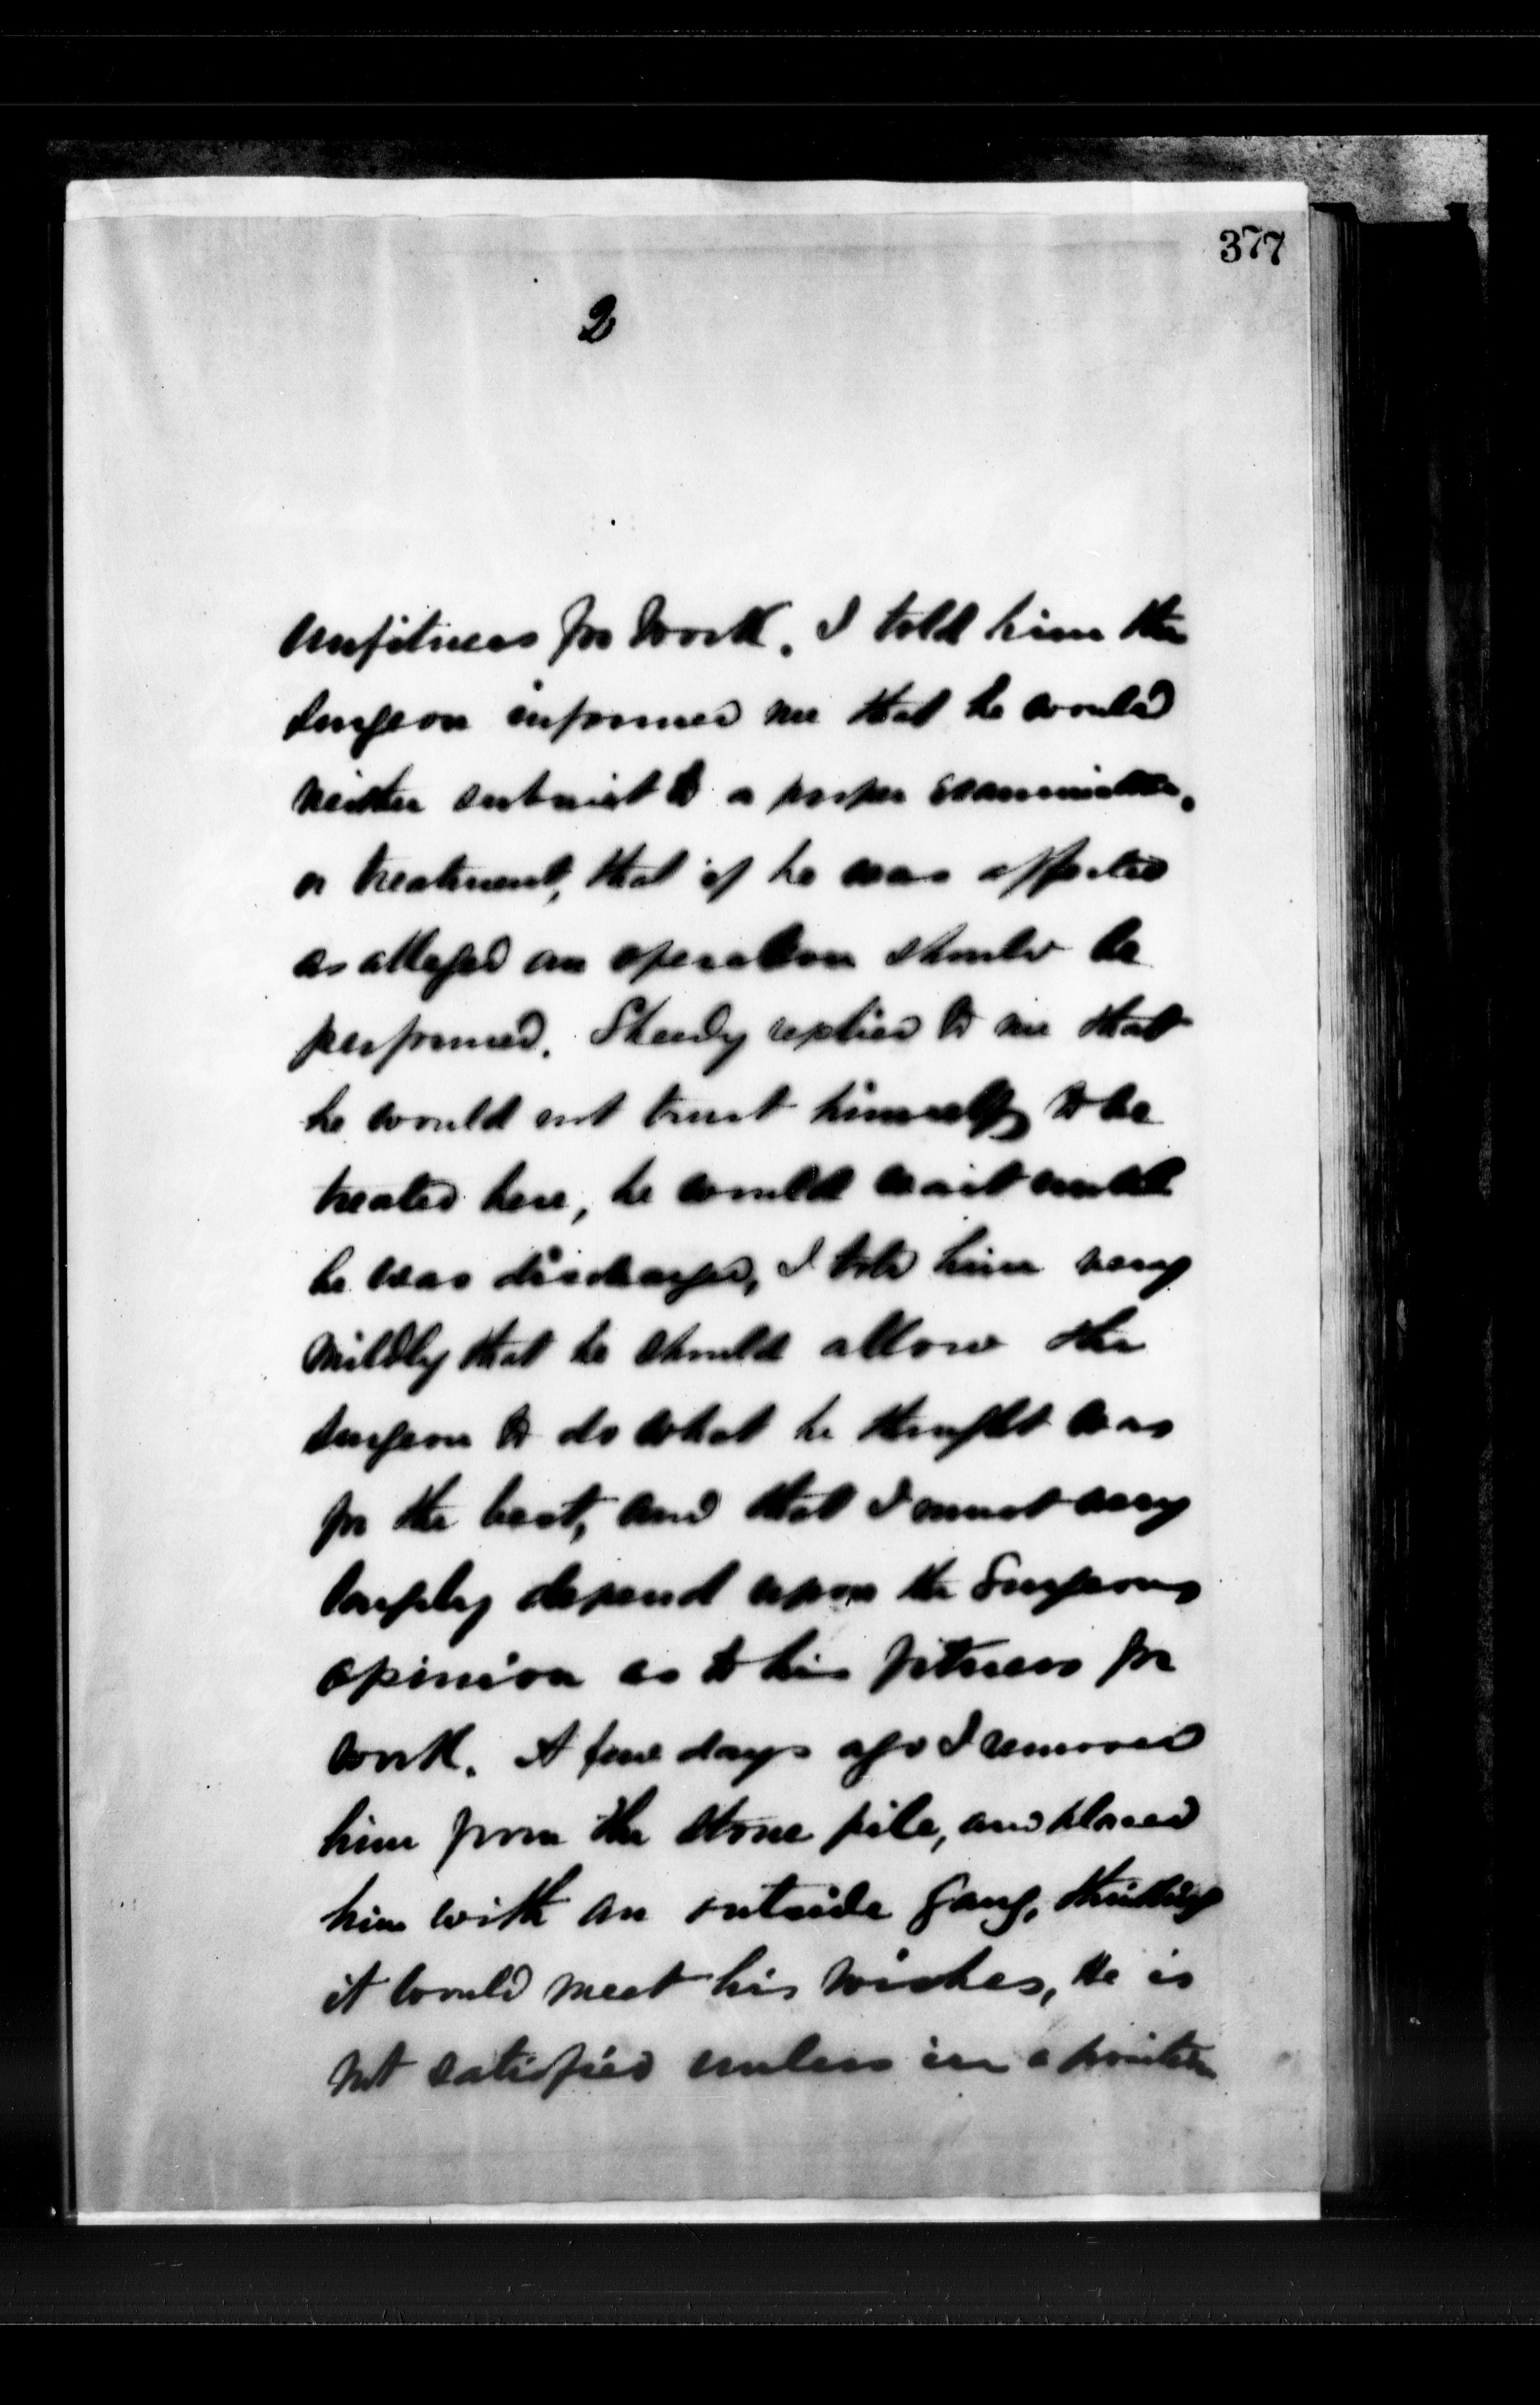 377
2
unfitness for work. I told him the
surgeon informed me that he would
neither submit to a proper examination,
or treatment, that if he was affected
as alleged an operation should be
performed. Sheedy replied to me that
he would not trust himself to be
treated here, he would wait until
he was discharged, I told him very
mildly that he should allow the
surgeon to do what he thought was
for the best, and that I must very
largely depend upon the Surgeons
opinion as to his fitness for
work. A few days ago I removed
him from the stone pile, and placed
him with an outside gang, thinking
it would meet his wishes, He is
not satisfied unless in a position